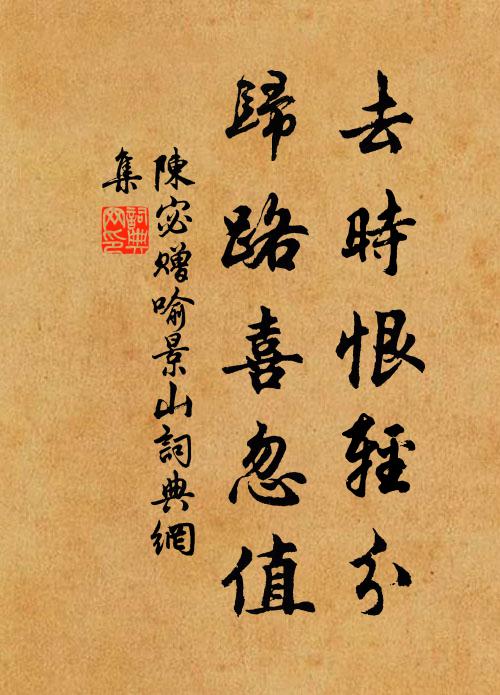 去時恨輕分
歸路喜忽值
陳宓贈喻景山詞典網
集
詞典網印